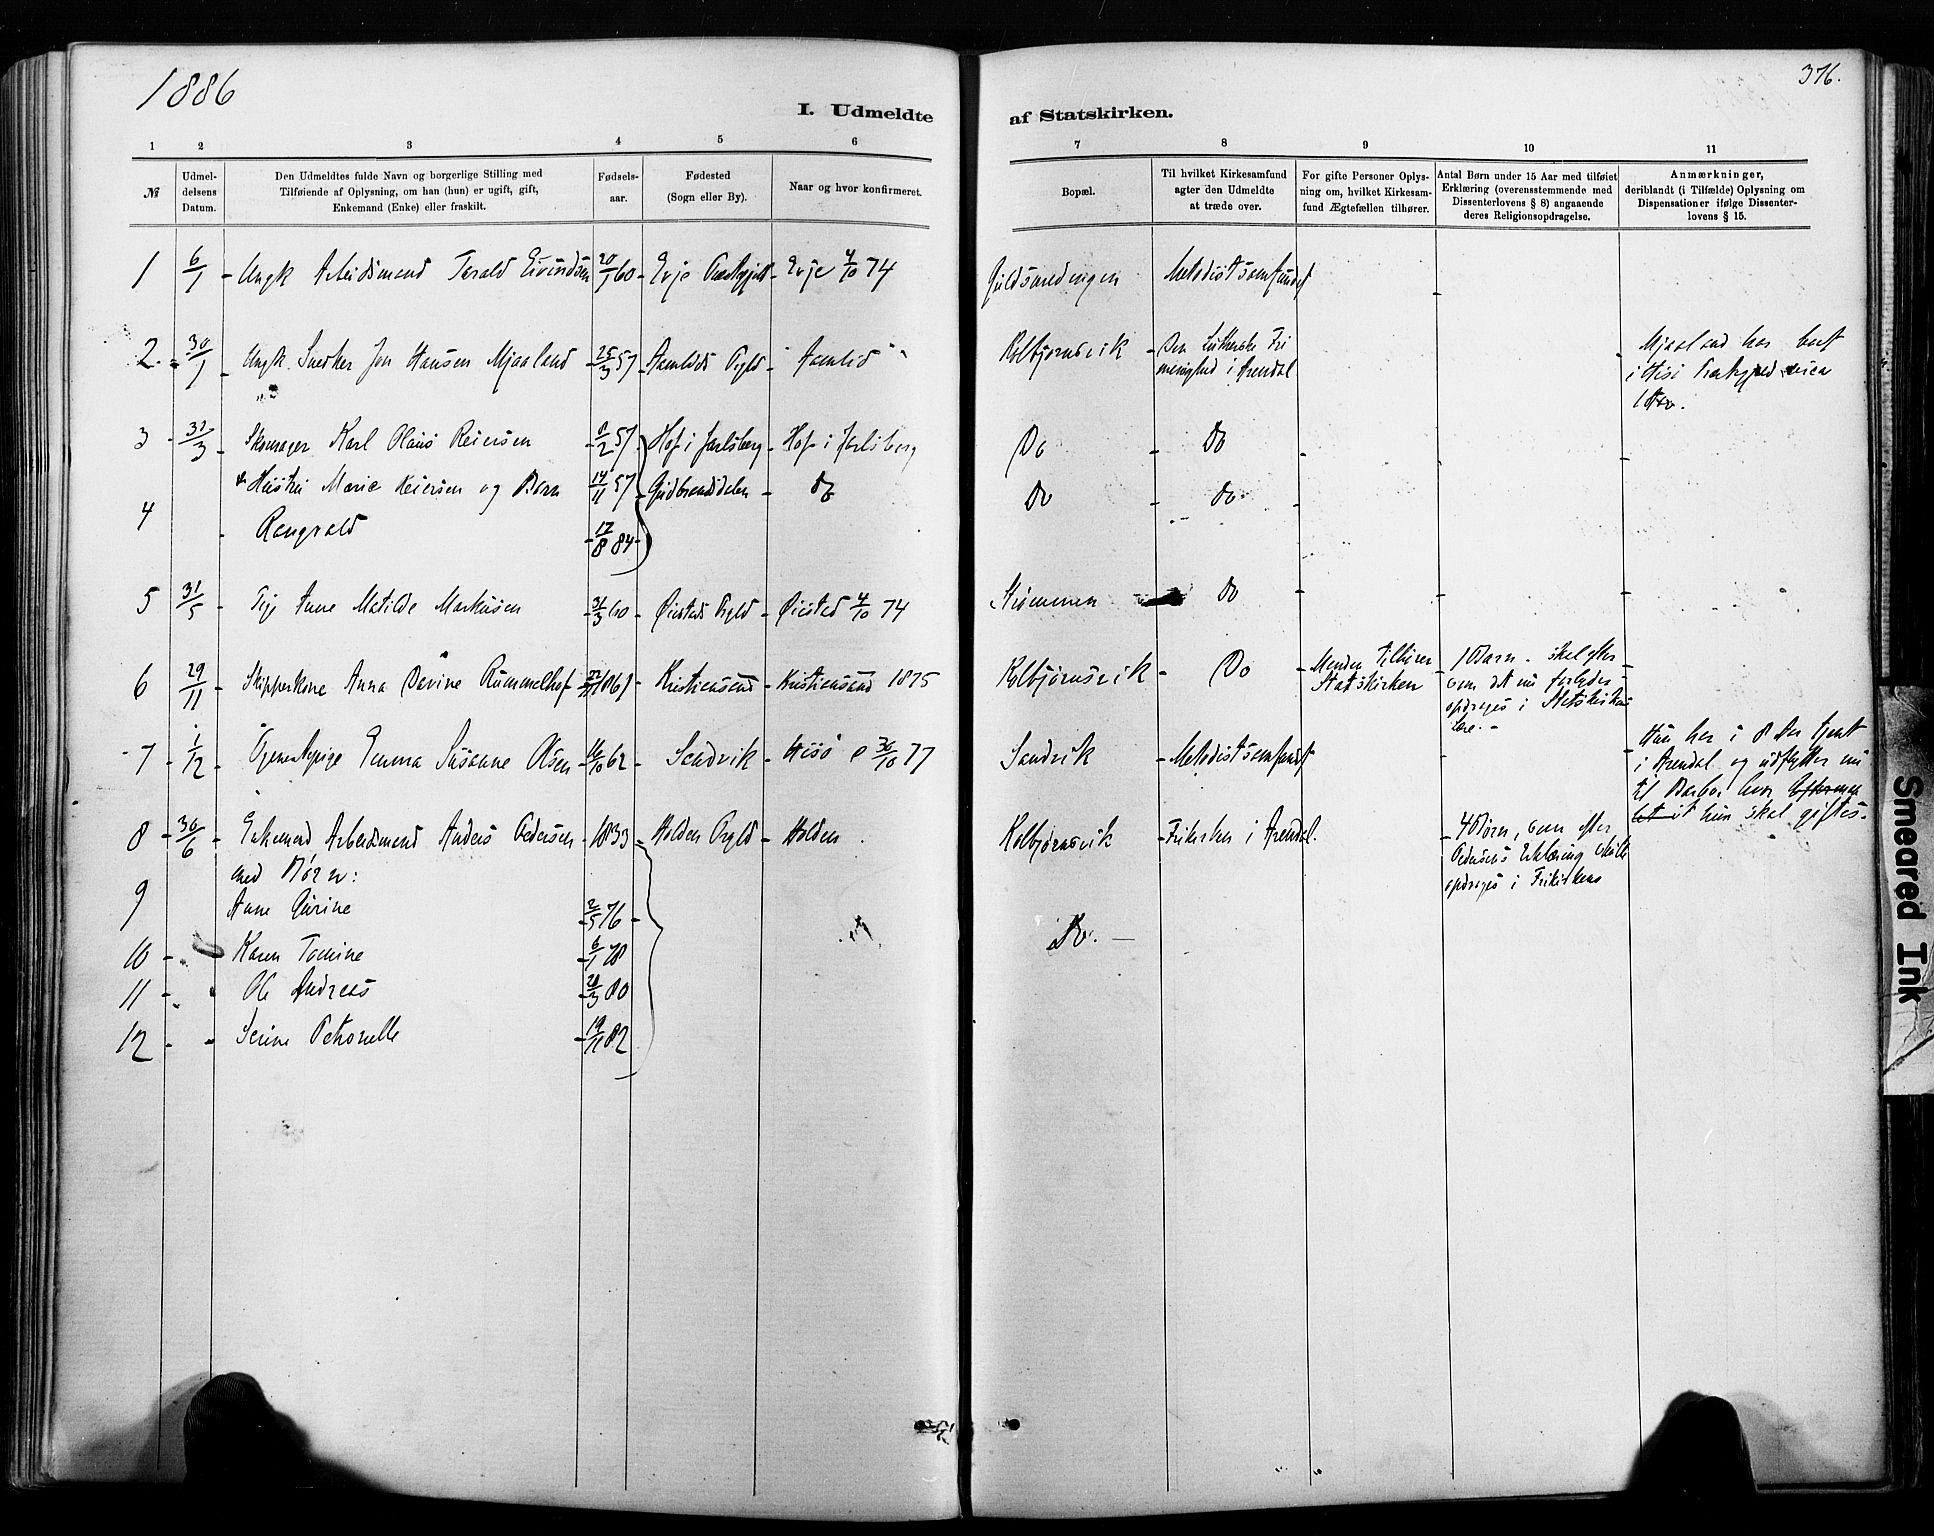 1886
376.
I. Udmeldte af Statskirken.
1 2 3 4 5 6 7 8 9 10 11
№
Udmel-
delsens
Datum.
Den Udmeldtes fulde Navn og borgerlige Stilling med
Tilføiende af Oplysning, om han (hun) er ugift, gift,
Enkemand (Enke) eller fraskilt.
Fødsels-
aar.
Fødested
(Sogn eller By).
Naar og hvor konfirmeret.
Bopæl.
Til hvilket Kirkesamfund
agter den Udmeldte
at træde over.
For gifte Personer Oplys-
ning om, hvilket Kirkesam-
fund Ægtefællen tilhører.
Antal Børn under 15 Aar med tilføiet
Erklæring (overensstemmende med
Dissenterlovens § 8) angaaende
deres Religionsopdragelse.
Anmærkninger,
deriblandt (i Tilfælde) Oplysning om
Dispensationer ifølge Dissenter-
lovens § 15.
1 6/1 Ungk Arbeidsmand Terald Eivindsen 20/1 60 Evje Præstegjeld Evje 4/10 74 Guldsmedengen Metodistsamfundet
2. 30/1 Ungk. Snedker Jon Hansen Mjaaland 25/3 57 Aamlids Prgld Aamlid Kolbjørnsvik Den Lutherske Fri
menighed i Arendal
Mjaaland har boet
i Hisø
3 31/3 Skomager Karl Olaus Reiersen 8/2 57 Hof i Jarlsberg Hof i Jarlsberg Do Do
& Hustru Marie Reiersen og Barn 14/11 57 Gudbrandsdalen Do Do Do
4 Rangvald 17/8 84
5 31/5 Pige Anne Matilde Markusen 31/3 60 Øiestads Prgld Øiestad 4/10 74 Strømmen Do
6 29/11 Skipperkone Anna Rummelhof 1861 Kristiansand Kristiansand 1875 Kolbjørnsvik Do
Manden tilhører
Statskirken
1 Barn. skal efter
som det nu
opdrages i Statskirkens
lære.
7 1/12 Tjenestepige Emma Susanne Olsen 16/10 62 Sandvik Hisø 30/10 77 Sandvik Metodistsamfundet
Hun har i 8 Aar tjent
i Arendal og udflytter nu
til Barbo, hvor
hun skal giftes.
8 30/6 Enkemand Arbeidsmand Anders Pedersen 1833 Holden Prgld Holden Kolbjørnsvik Frikirken i Arendal.
4 Børn, som efter
Pedersens Erklæring skulle
opdrages i Frikirkens
med Børn:
9 Anne Gurine 2/5 76 Do.
10 Karen Tomine 6/1 78
11 Ole Andreas 28/3 80
12 Serine Petronelle 19/11 82
Smeared Ink